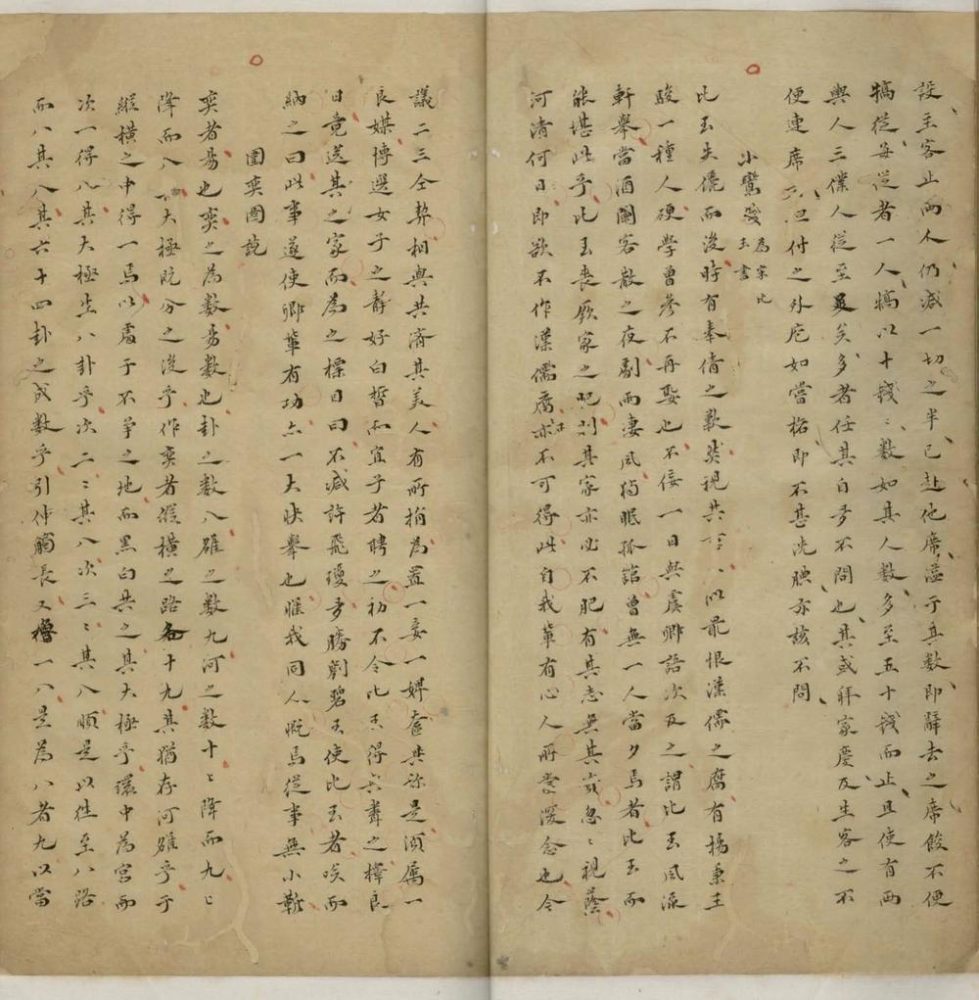 設主客止兩人仍減一切之半已赴他席溢于其數即辭去之席餕不便
犒從每從者一人犒以十錢〻數如其人數多至五十錢而止且使有兩
與人三僕人從至足矣多者任其自多不問也其或拜家慶及生客之不
便連席六旦付之外庖如當格即不甚洗腆亦該不問
小鸞彀為宋比玉書
比玉失儷而後時有奉倩之歎然視其言〻以最恨漢儒之腐有揚秉王
駿一種人硬學曾參不再娶也不佞一日與虞卿語次及之謂比玉風流
軒舉當酒闌客散之夜剔而淒風獨眠孤詣曾無一人當夕焉者比玉而
能堪此乎比玉喪厥家之肥則其家亦必不肥有其志無其歲忽〻視蔭
河清何日即欲不作漢儒腐亦不可得此自我輩有心人所當深念也今
議二三仝契相與共濟其美人有所捐為置一妾一婢奩具弥是須屬一
良媒博選女子之靜好白皙而宜子者聘之初不令比玉得與聞之擇良
日竟送其之家而為之標目曰不減許飛瓊方勝劉碧玉使比玉者咲而
納之曰此事遂使卿輩有功亦一大快舉也惟我同人既馬從事無小靳
圍奕圖說
奕者易也奕之為數易數也卦之數八雒之數九河之數十〻降而九〻
降而八八大極既分之後乎作奕者縱橫之路各十九其猶存河雒乎于
縱橫之中得一焉以處于不爭之地而黑白共之其大極乎環中為宮而
次一得八其大極生八卦乎次二〻其八次三〻其八順是以往至八路
而八其八其六十四卦之成數乎引伸觸長又擼一八是為八者九以當